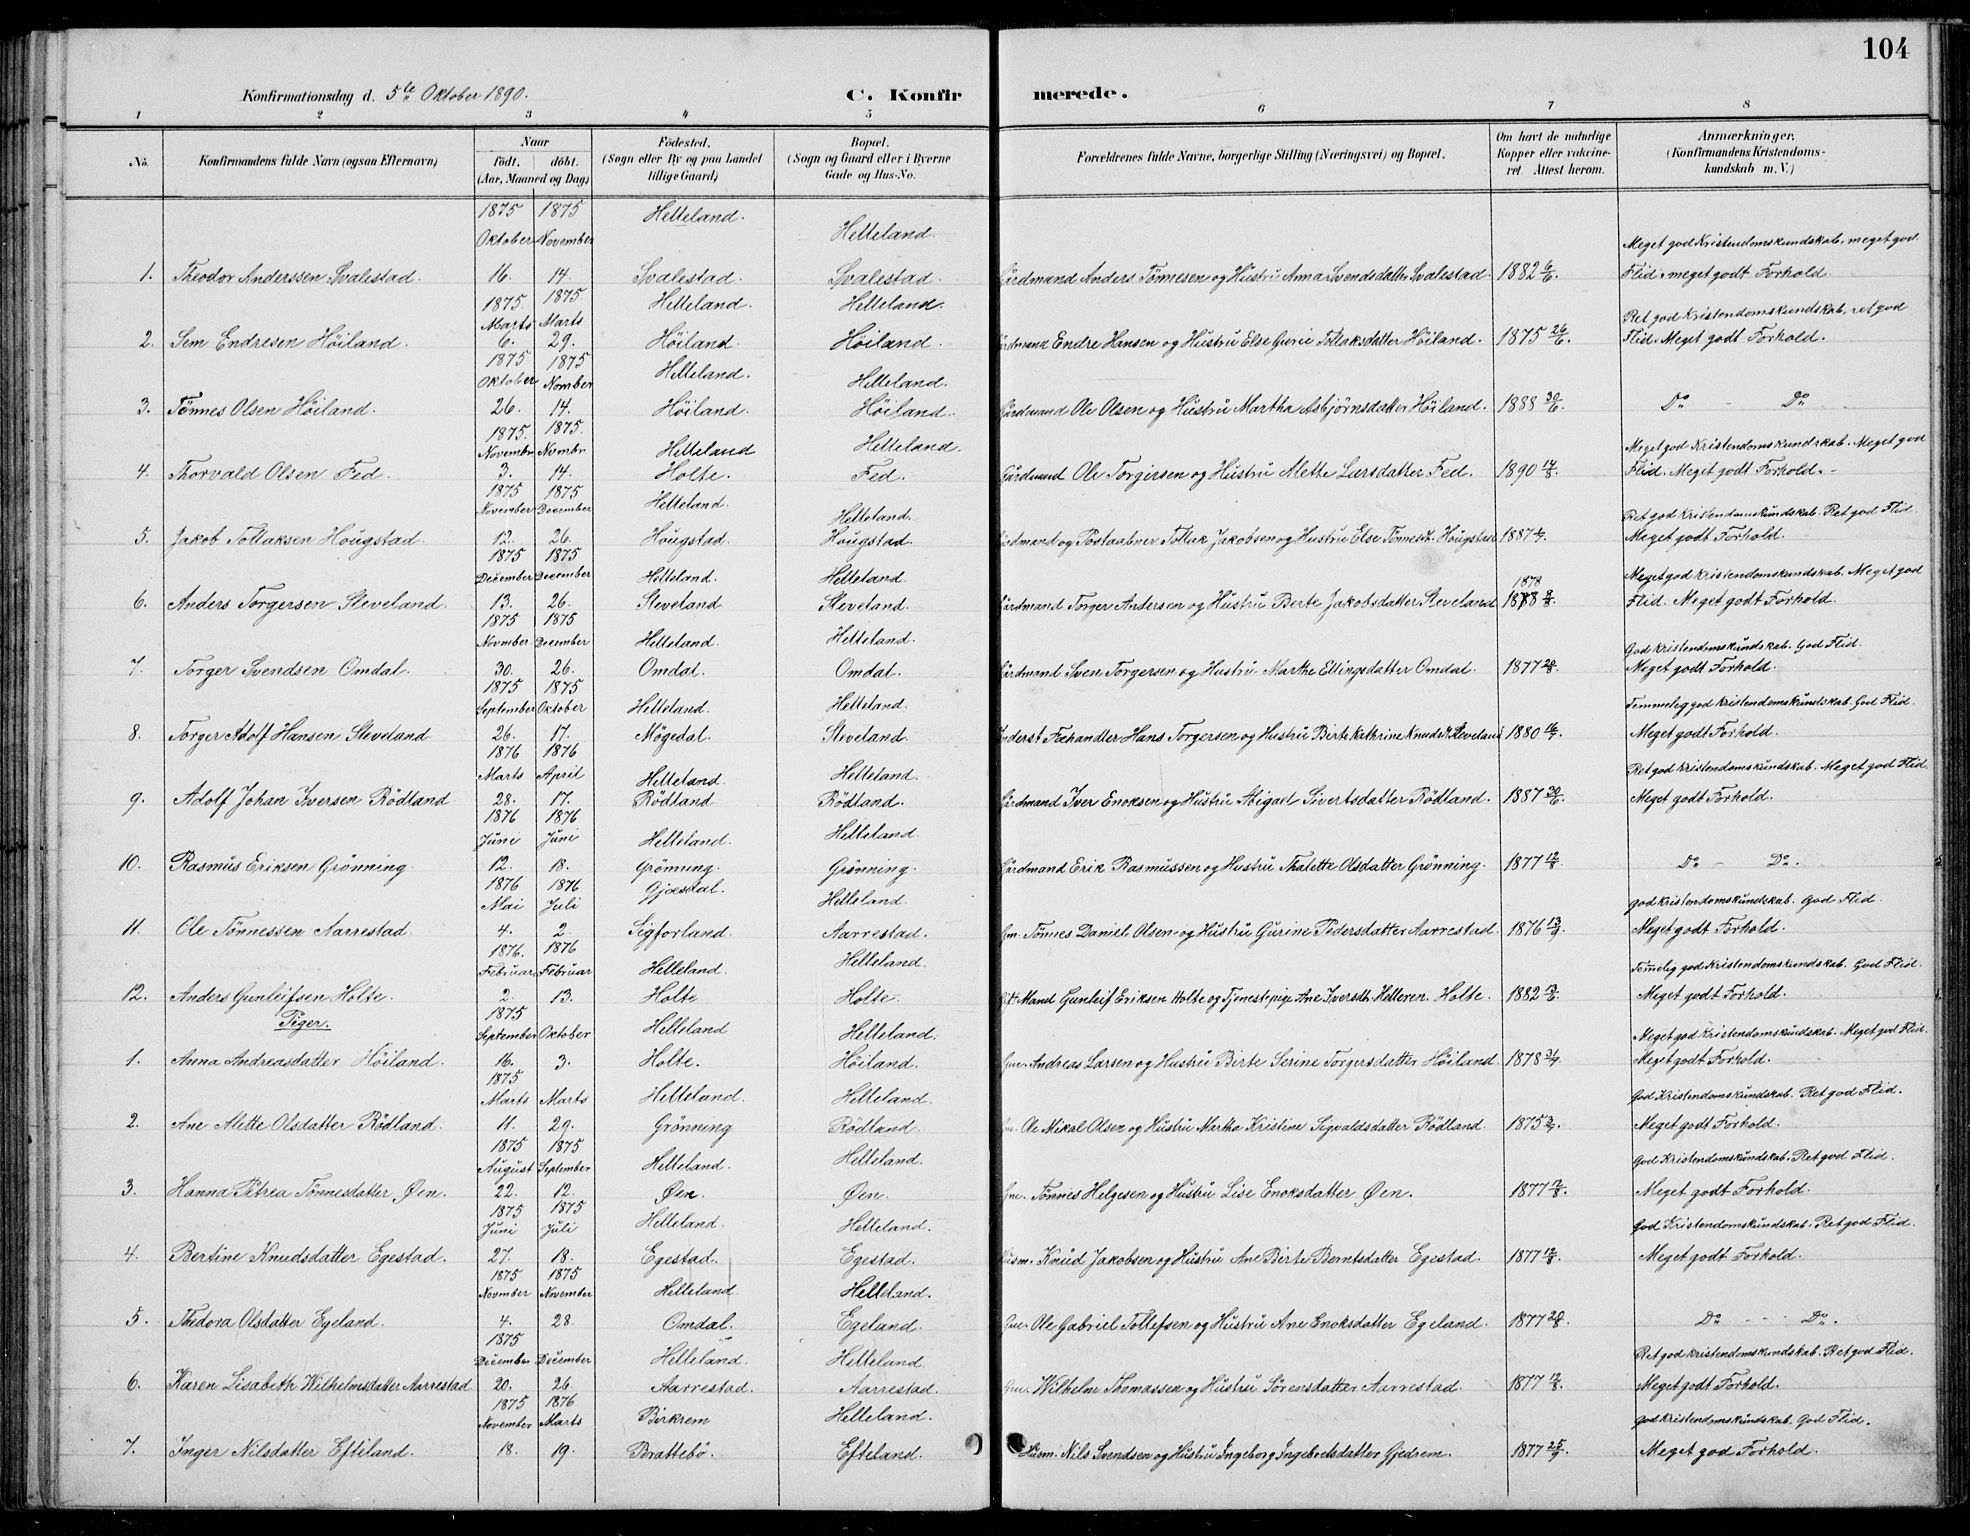 104
Konfirmationsdag d. 5te Oktober 1890.
C. Konfirmerede.
1 2 3 4 5 6 7 8
No.
Konfirmandens fulde Navn (ogsaa Efternavn)
Naar
födt. döbt.
(Aar, Maaned og Dag)
Födested.
(Sogn eller By og paa Landet
tillige Gaard)
Bopæl.
(Sogn og Gaard eller i Byerne
Gade og Hus-No.
Forældrenes fulde Navne, borgerlige Stilling (Næringsvei) og Bopæl.
Om havt de naturlige
Kopper eller vakcine-
ret. Attest herom.
Anmærkninger.
(Konfirmandens Kristendoms-
kundskab m. V.)
1875 1875 Helleland.
Oktober November Helleland. Meget god Kristendomskundskab, meget god
1. Theodor Anderssen Svalestad. 16. 14. Svalestad. Svalestad. Gårdmand Anders Tönnesen og Hustru Anna Svendsdatter Svalestad. 1882 6/6. Flid, meget godt Forhold.
1875. 1875 Helleland. Helleland.
Marts Marts Ret god Kristendomskundskab, ret god
2. Sem Endresen Höiland. 6. 29. Höiland. Höiland. Gårdmand Endre Hansen og Hustru Else Gurie Tollaksdatter Höiland. 1875 26/6. Flid. Meget godt Forhold.
1875 1875 Helleland.
Oktober Nomber Helleland.
3. Tönnes Olsen Höiland. 26. 14. Höiland. Höiland. Gårdmand Ole Olsen og Hustru Martha Asbjörnsdatter Höiland. 1888 30/6. Do - Do
1875. 1875.
Novembr Nombr Helleland Helleland. Meget god Kristendomskundskab. Meget god
4. Thorvald Olsen Fed. 3. 14. Holte. Fed. Gårdmand Ole Torgersen og Hustru Mette Larsdatter Fed. 1890 14/8. Flid. Meget godt Forhold. -
1875 1875
November December Helleland. Helleland. Ret god Kristendomskundskab. Ret god Flid.
5. Jakob Tollaksen Hougstad. 12. 26. Hougstad. Hougstad. Gårdmand og Postaabner Tollak Jakobsen og Hustru Else Tönnesdt. Hougstad 1887 Meget godt Forhold.
1875 1875
December December Helleland. Helleland. Meget god Kristendomskundskab. Meget god
1878
6. Anders Torgersen Sleveland. 13. 26. Sleveland Sleveland. Gårdmand Torger Andersen og Hustru Berte Jakobsdatter Sleveland 1888 Flid. Meget godt Forhold.
1875 1875
Novmber December Helleland. Helleland. God Kristendomskundskab. God Flid.
7. Torger Svendsen Omdal. 30. 26. Omdal. Omdal. Gårdmand Sven Torgersen og Hustru Marthe Ellingsdatter Omdal. 1877 28/8. Meget godt Forhold.
1875 1875
September Oktober Helleland. Helleland. Temmelig god Kristendomskundskab. God Flid.
8. Torger Adolf Hansen Sleveland 26. 17. Mögedal. Sleveland. Inderst Fæhandler Hans Torgersen og Hustru Birte Kathrine Knudsdt. Sleveland 1880 16/7. Meget godt Forhold.
1876 1876
Marts April Helleland. Helleland. Ret god Kristendomskundskab. Meget god Flid.
9. Adolf Johan Iversen Rödland 28. 17. Rödland Rödland. Gårdmand Iver Enoksen og Hustru Abigael Sivertsdatter Rödland. 1887 30/6. Meget godt Forhold.
1876 1876
Juni Juni Helleland. Helleland
10. Rasmus Eriksen Grönning. 12. 18. Grönning. Grönning. Gårdmand Erik Rasmussen og Hustru Thalette Olsdatter Grönning. 1877 12/8. Do - Do.
1876 1876 Gjæsdal.
Mai Juli Helleland. God Kristendomskundskab. God Flid.
11. Ole Tönnessen Aarrestad. 4. 2. Sigforland. Aarrestad. Gm. Tönnes Daniel Olsen og Hustru Gurine Pedersdatter Aarrestad. 1876 13/9. Meget godt Forhold.
1876. 1876
Februar Februar Helleland. Helleland. Temelig god Kristendomskundskab. God Flid.
12. Anders Gunleifsen Holte. 2. 13. Holte Holte. Gift Mand Gunleif Eriksen Holte og Tjenestepige Ane Iversdt. Helleren. Holte. 1882 13/6. Meget godt Forhold.
Piger. 1875
September Oktober Helleland Helleland. Meget god Kristendomskundskab. Meget god Flid.
1. Anna Andreasdatter Höiland. 16. 3. Holte. Höiland. Gm. Andreas Larsen og Hustru Birte Serine Torgersdatter Höiland 1878 Meget godt Forhold.
1875
Marts Marts Helleland. Helleland. God Kristendomskundskab. Ret god Flid.
2. Ane Alette Olsdatter Rödland. 11. 29. Grönning Rödland. Gm. Ole Mikal Olsen og Hustru Martha Kristine Sigvaldsdatter Rödland. 1875 Meget godt Forhold.
1875 1875
August September Helleland. Helleland. God Kristendomskundskab. Ret god Flid.
3. Hanna Petrea Tönnesdatter Øen. 22. 12. Øen. Øen. Gm. Tönnes Helgesen og Hustru Lise Enoksdatter Øen. 1877 12/8. Meget godt Forhold.
1875 1875
Juni Juli Helleland. Helleland. God Kristendomskundskab. Ret god Flid.
4. Bertine Knudsdatter Egestad. 27. 18. Egestad. Egestad. Husm. Knud Jakobsen og Hustru Ane Birte Berntsdatter Egestad. 1877 12/8. Meget godt Forhold.
1875 1875
Novmber November Helleland. Helleland.
5. Thedora Olsdatter Egeland. 4. 28. Omdal. Egeland. Gm. Ole Gabriel Tollefsen og Hustru Ane Enoksdatter Egeland. 1877 28/8. Do - Do.
1875
December December Helleland. Helleland. Ret god Kristendomskundskab. Ret god Flid.
6. Karen Lisabeth Wilhelmsdatter Aarrestad 20. 26. Aarrestad. Aarrestad. Gm. Wilhelm Thomassen og Hustru Sörensdatter Aarrestad. 1877 12/8. Meget godt Forhold.
1875 1876
November Marts Birkrem Helleland. God Kristendomskundskab. God Flid.
7. Inger Nilsdatter Efteland. 18. 19. Brattebö. Efteland. Husm. Nils Svendsen og Hustru Ingeborg Ingebretsdatter Gjedrem. 1877 25/9. Meget god Forhold.